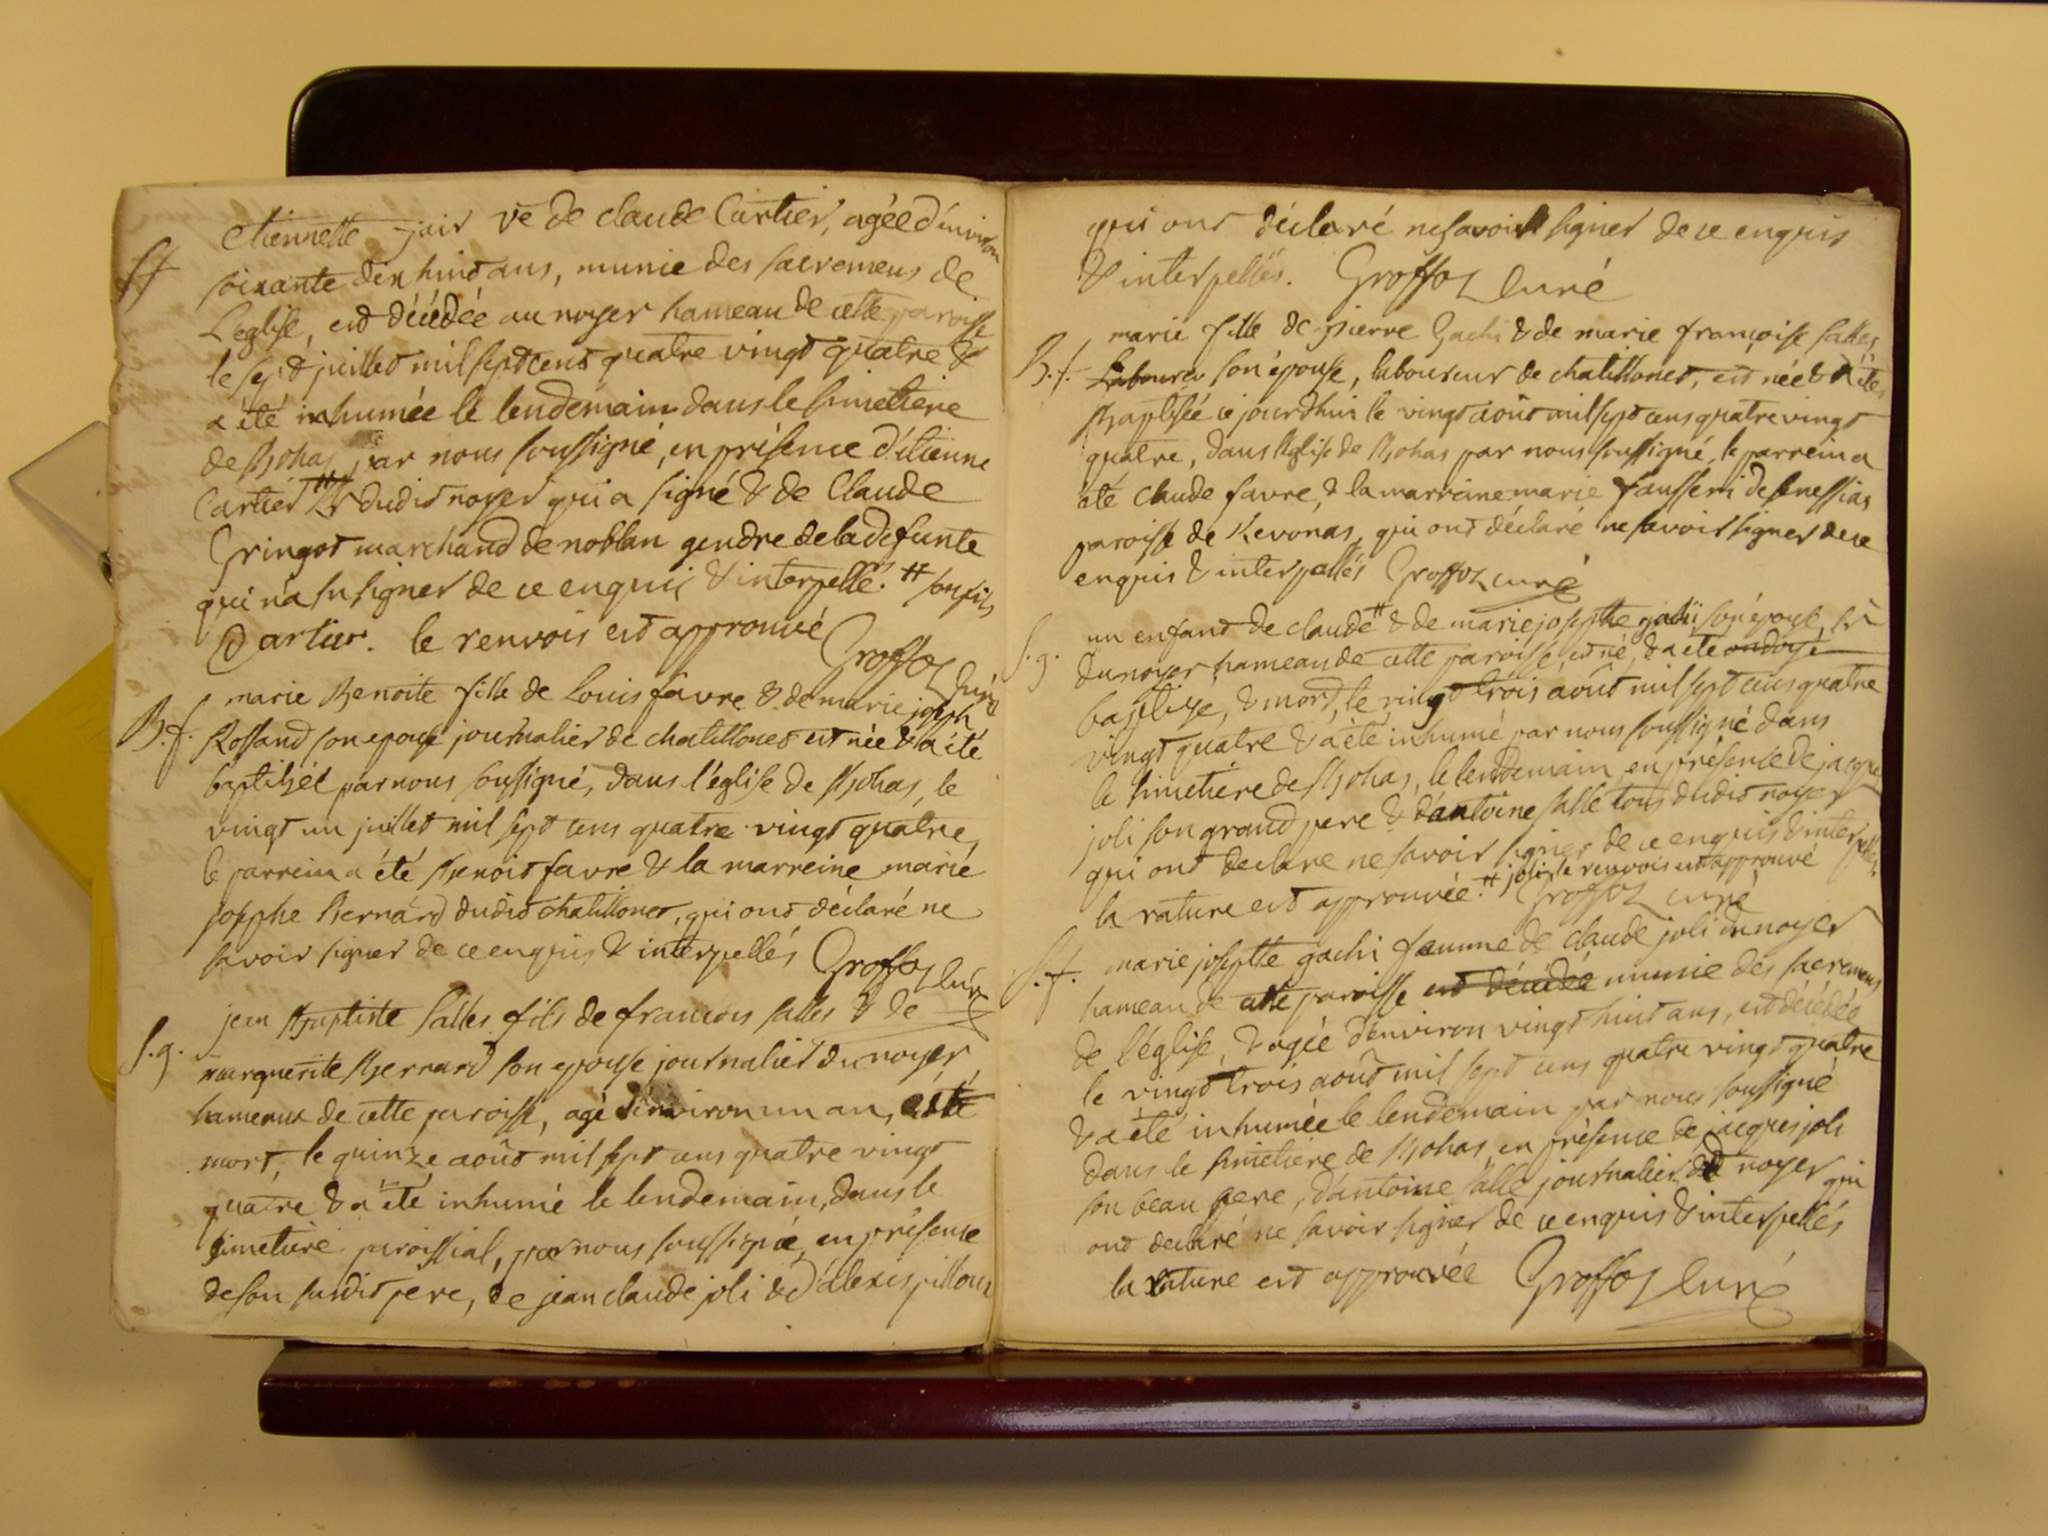 etiennette jair ve de claude Cartier, agée d'environ
Sf soixante dix huit ans, munie des sacremens de
L'eglise, est décédée au noyer hameau de cette paroisse
le sept juillet mil sept cent quatre vingt quatre &
a été inhumée le lendemain dans le simetiere
de Bohas, par nous soussigné, en présence d'étienne
Cartier # dudit noyer qui a signé & de Claude
Gringot marchand de noblan gendre de la defunte
qui n'a su signer de ce enquis & interpellé. # son fils
Cartier. le renvois est approuvé
Groffoz Curé
marie Benoite fille de Louis favre & de marie joseph
B.f. Rossand son epouse journalier de chatillonet est née & a été
baptisée par nous soussigné, dans l'église de Bohas, le
vingt un juillet mil sept cens quatre vingt quatre,
le parrein a été Benoit favre & la marreine marie
josephe Bernard dudit chatillonet, qui ont déclaré ne
savoir signer de ce enquis & interpellés Groffoz Curé
jean Baptiste Salles fils de francois salles & de
S.g. marguerite Bernard son epouse journalier du noyer
hameaux de cette paroisse, agé d'environ un an, est
mort, le quinze août mil sept cens quatre vingt
quatre & a été inhumé le lendemain, dans le
simetiere paroissial, par nous soussigné, en présence
de son susdit pere, de jean claude joli & d'alexis pillon
qui ont déclaré ne savoir signer de ce enquis
& interpellés. Groffoz Curé
marie fille de pierre Gachi & de marie françoise salles
B.f. Laboureur son épouse, laboureur de chatillonet, est née & a été
Baptisée ce jourdhui le vingt août mil sept cens quatre vingt
quatre, dans l'église de Bohas par nous soussigné, le parrein a
été claude favre, & la marreine marie fausseri de senessias
paroisse de Revonas, qui ont déclaré ne savoir signer de ce
enquis & interpellés Groffoz curé
un enfant de claude # & de marie josephte gachi son épouse,
S.g. du noyer hameau de cette paroisse, est né, & a été ondoyé
baptizé, & mort, le vingt trois août mil sept cens quatre
vingt quatre & a été inhumé par nous soussigné dans
le simetiere de Bohas, le lendemain en présence de jacques
joli son grand pere & d'antoine salle tous dudit noyer
qui ont declare ne savoir signer de ce enquis & interpellés
la rature est approuvée. # joli le renvois est approuvé
Groffoz curé
marie josephte gachi femme de claude joli du noyer
S.f. hameau de cette paroisse est décédée munie des sacremens
de l'église, & agée d'environ vingt huit ans, est décédée
le vingt trois août mil sept cens quatre vingt quatre
& a été inhumée le lendemain par nous soussigné
dans le simetiere de Bohas, en présence de jacques joli
son beau pere, d'antoine salle journalier du noyer qui
ont declaré ne savoir signer de ce enquis & interpellés
la rature est approuvée Groffoz Curé